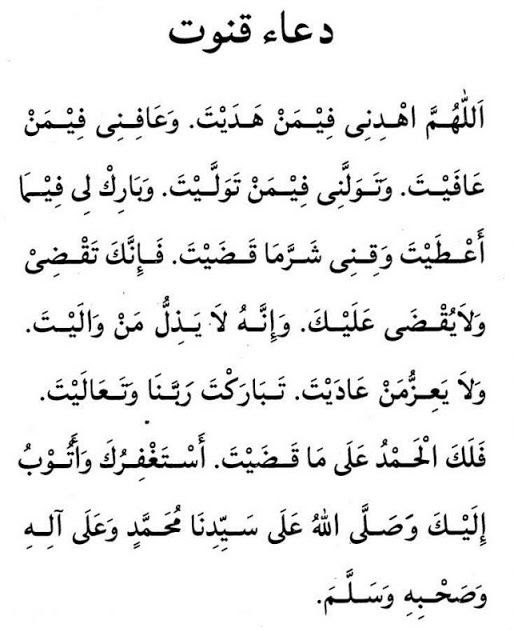 دعاء قنوت
اَللّٰهُمَّ اهْدِنِى فِيْمَنْ هَدَيْتَ. وَعَافِنِى فِيْمَنْ
عَافَيْتَ. وَتَوَلَّنِى فِيْمَنْ تَوَلَّيْتَ. وَبَارِكْ لِى فِيْمَا
أَعْطَيْتَ وَقِنِى شَرَّمَا قَضَيْتَ. فَإِنَّكَ تَقْضِىْ
وَلاَيُقْضَى عَلَيْكَ. وَإِنَّهُ لاَ يَذِلُّ مَنْ وَالَيْتَ.
وَلاَ يَعِزُّمَنْ عَادَيْتَ. تَبَارَكْتَ رَبَّنَا وَتَعَالَيْتَ.
فَلَكَ الْحَمْدُ عَلَى مَا قَضَيْتَ. أَسْتَغْفِرُكَ وَأَتُوْبُ
إِلَيْكَ وَصَلَّى اللهُ عَلَى سَيِّدِنَا مُحَمَّدٍ وَعَلَى آلِهِ
وَصَحْبِهِ وَسَلَّمَ.